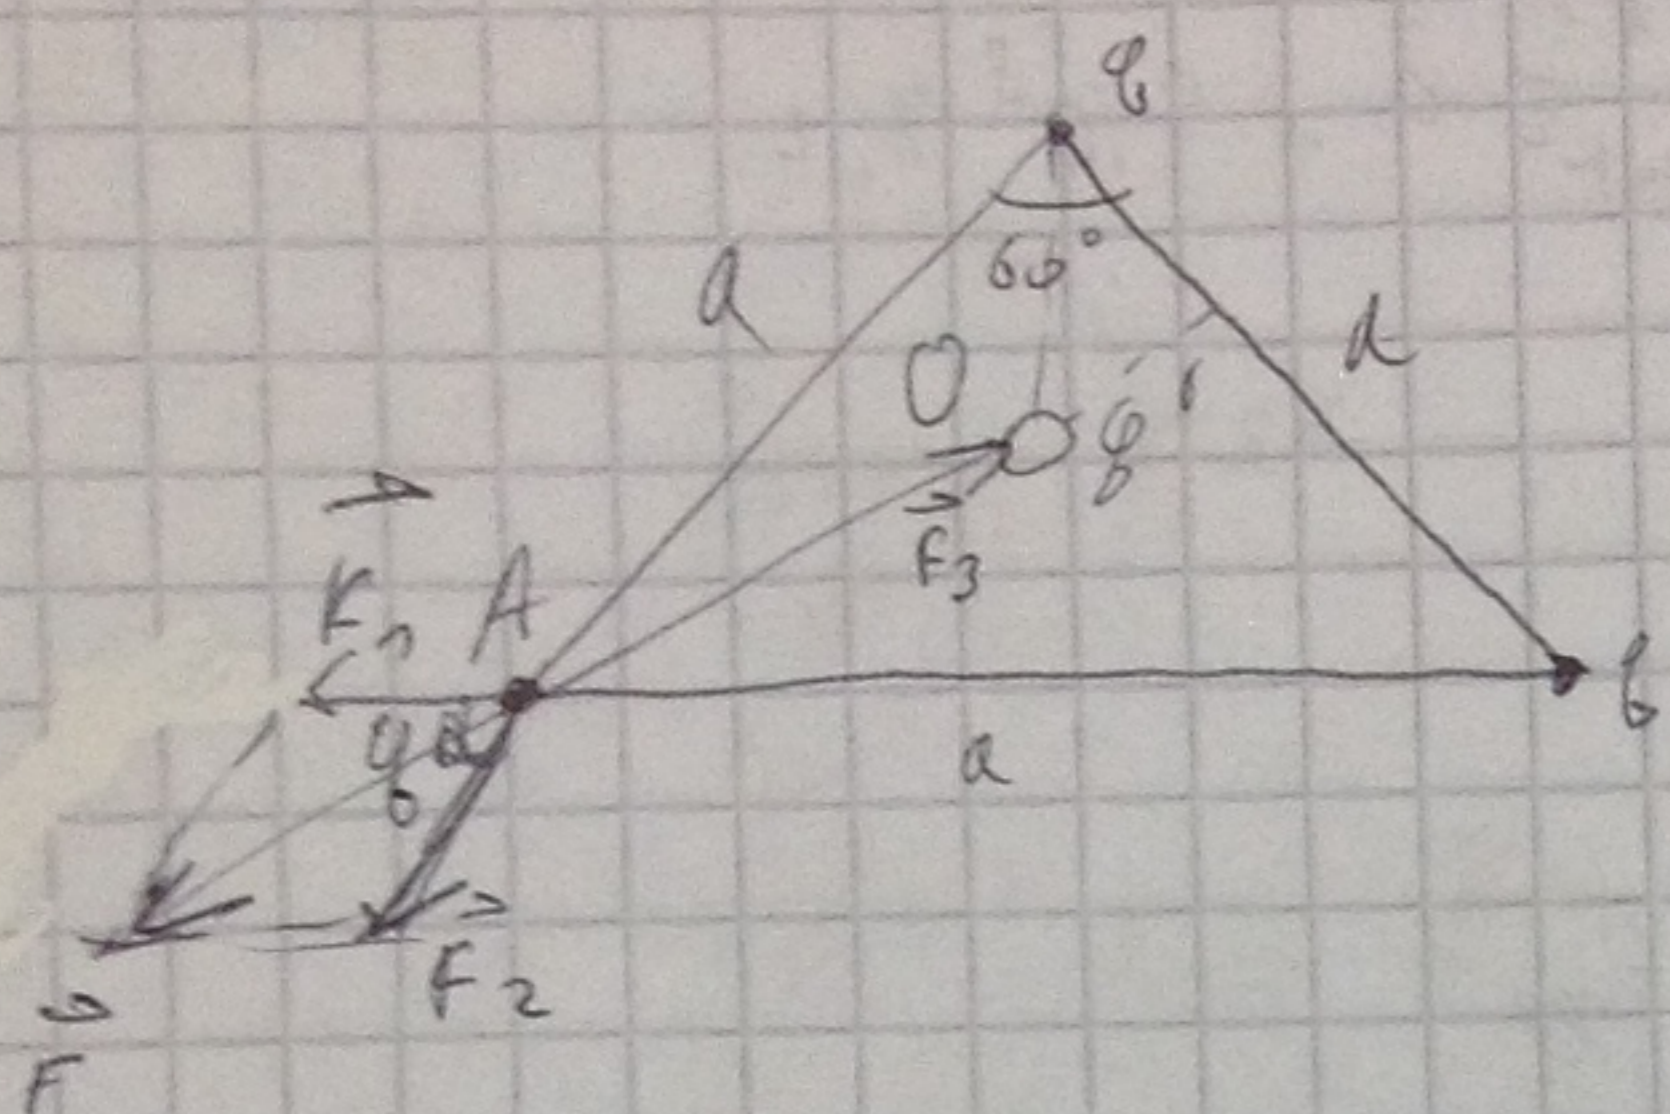 q
60°
a
a
O
q'
F₃
F₁
A
q
α
a
q
F₂
F